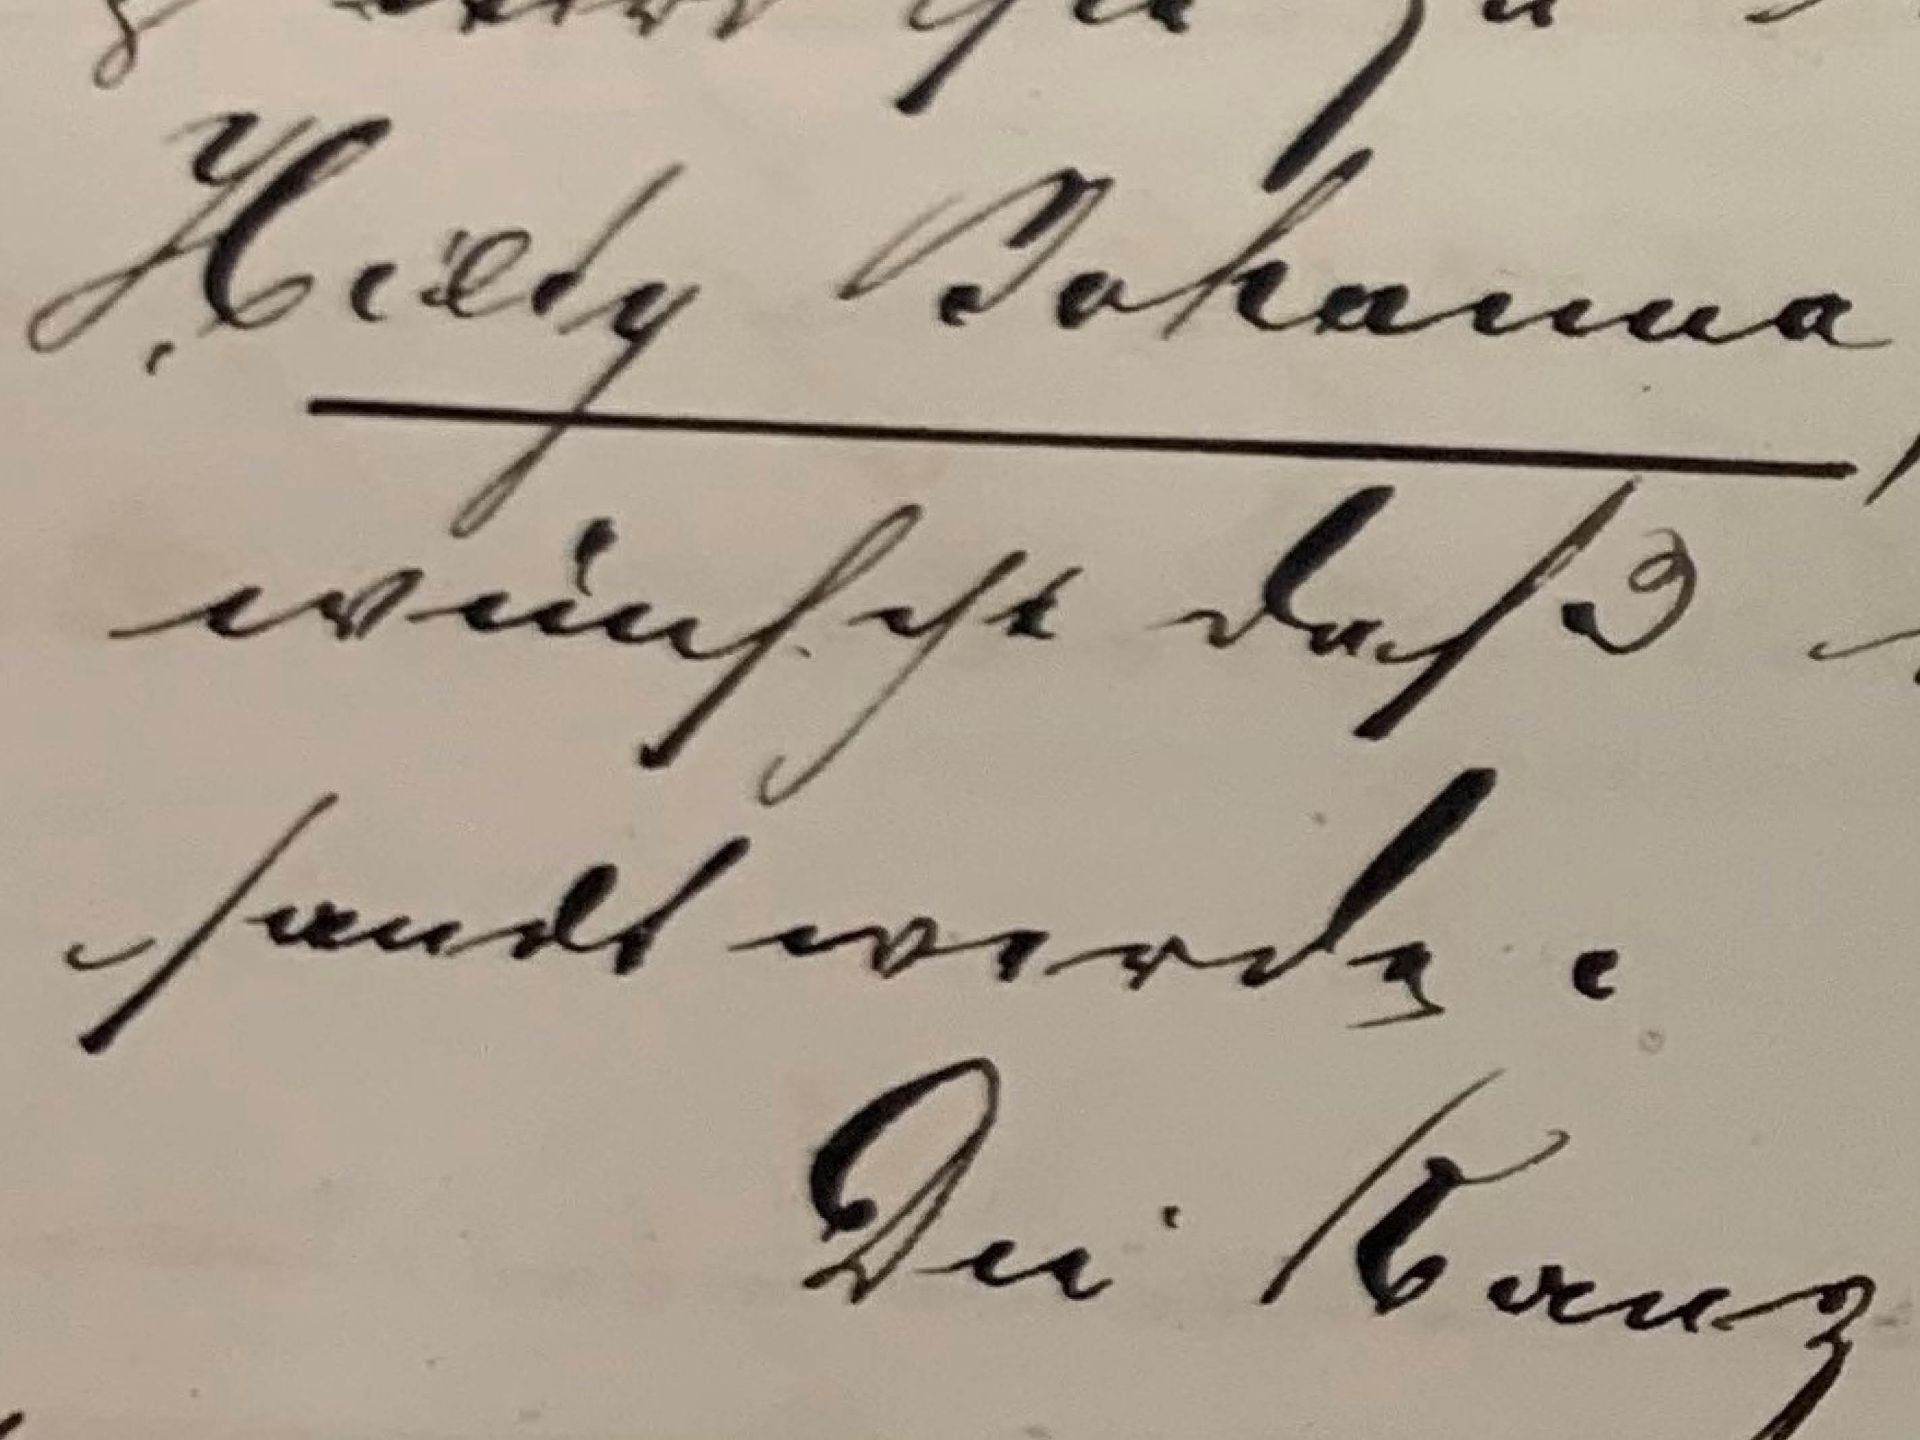 zu
Johanna
wünscht daß
sandt werde.
Die Kanz